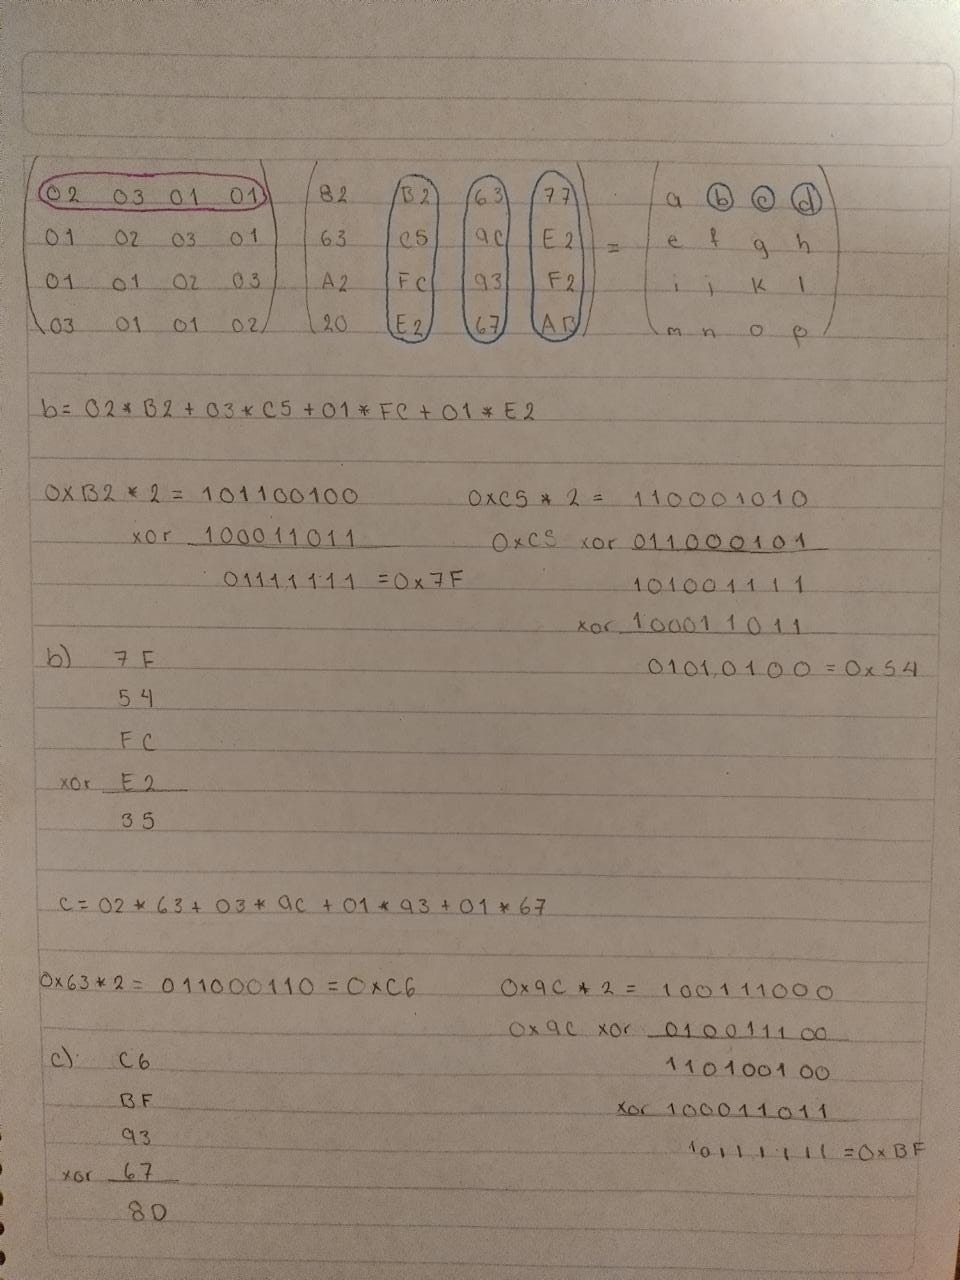 02 03 01 01 82 B2 63 77 a b c d
01 02 03 01 63 C5 9C E2 = e f g h
01 01 02 03 A2 FC 93 F2 i j k l
03 01 01 02 20 E2 67 AB m n o p
b= 02*B2+03*C5+01*FC+01*E2
0xB2*2= 101100100
xor 100011011
01111111 =0x7F
0xC5*2= 110001010
0xC5 xor 011000101
101001111
xor 100011011
01010100 =0x54
b) 7F
54
FC
xor E2
35
c=02*63+03*9C+01*93+01*67
0x63*2= 011000110 =0xC6
0x9C*2= 100111000
0x9C xor 010011100
110100100
xor 100011011
10111111 =0xBF
c) C6
BF
93
xor 67
8D